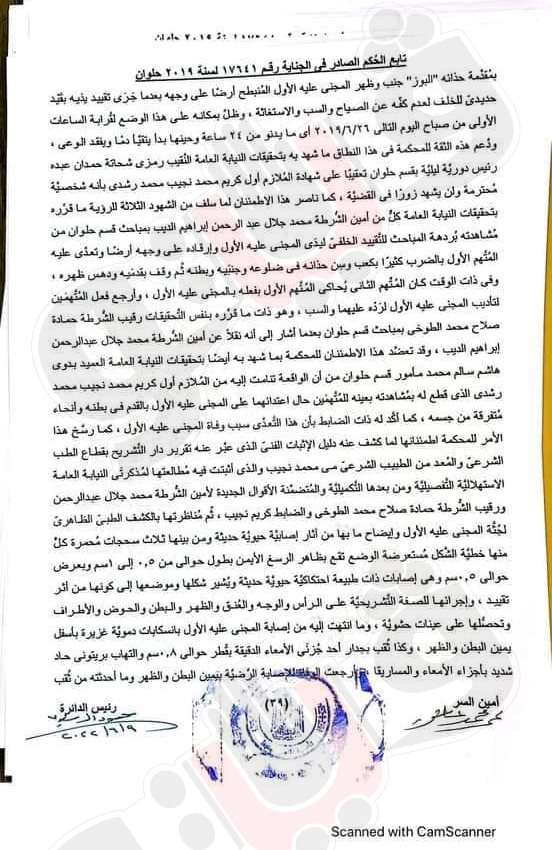 تابع الحُكم الصادر فى الجناية رقم ١٧٦٤١ لسنة ٢٠١٩ حلوان
بمُقدّمة حذائه "البوز" جنب وظهر المجنى عليه الأول المُنبطح أرضًا على وجهه بعدما جَرَى تقييد يديه بقَيْد
حديدىّ للخلف لعدم كفّه عن الصياح والسب والاستغاثة ، وظلّ بمكانه على هذا الوضع لقُرابة الساعات
الأولى من صباح اليوم التالى ٢٠١٩/٦/٢٦ أى ما يدنو من ٢٤ ساعة وحينها بدأ يتقيّأ دمًا وبفقد الوعى ،
ودُعم هذه الثقة للمحكمة فى هذا النطاق ما شهد به بتحقيقات النيابة العامة النّقيب رمزى شحاتة حمدان عبده
رئيس دوريّة ليليّة بقسم حلوان تعقيبًا على شهادة المُلازم أول كريم محمد نجيب محمد رشدى بأنه شخصيّة
مُحترمة ولن يشهد زورًا فى القضيّة ، كما ناصر هذا الاطمئنان لما سلف من الشهود الثلاثة للرؤية ما قرّره
بتحقيقات النيابة العامة كلٌّ من أمين الشُّرطة محمد جلال عبد الرحمن إبراهيم الديب بمباحث قسم حلوان من
مُشاهدته بُردهة المباحث للتّقييد الخلفىّ ليدَى المجنى عليه الأول وإرقاده على وجهه أرضًا وتعدّى عليه
المُتّهم الأول بالضرب كثيرًا بكعب وسِن حذائه فى ضلوعه وجنبيه وبطنه ثُم وقف بقدميْه ودهس ظهره ،
وفى ذات الوقت كان المُتّهم الثانى يُحاكى المُتّهم الأول بفعله بالمجنى عليه الأول ، وأرجع فعل المُتّهمَيْن
لتأديب المجنى عليه الأول لردّه عليهما والسب ، وهو ذات ما قرّره بنفس التّحقيقات رقيب الشُّرطة حمادة
صلاح محمد الطوخى بمباحث قسم حلوان بعدما أشار إلى أنه نقلاً عن أمين الشُّرطة محمد جلال عبدالرحمن
إبراهيم الديب ، وقد تعضّد هذا الاطمئنان للمحكمة بما شهد به أيضًا بتحقيقات النيابة العامة العميد بدوى
هاشم سالم محمد مأمور قسم حلوان من أن الواقعة تنامت إليه من المُلازم أول كريم محمد نجيب محمد
رشدى الذى قطع له بمُشاهدته بعينه للمُتّهمَيْن حال اعتدائهما على المجنى عليه الأول بالقدم فى بطنه وأنحاء
مُتفرقة من جسمه ، كما أكّد له ذات الضابط بأن هذا التّعدّى سبب وفاة المجنى عليه الأول ، كما رسّخ هذا
الأمر للمحكمة اطمئنانها لما كشف عنه دليل الإثبات الفنىّ الذى عبّر عنه تقرير دار التّشريح بقطاع الطب
الشرعىّ والمُعد من الطبيب الشرعىّ مى محمد نجيب والذى أثبتت فيه مُطالعتها لمُذكرتَى النيابة العامة
الاستهلاليّة التّفصيليّة ومن بعدها التّكميليّة والمُتضمّنة الأقوال الجديدة لأمين الشُّرطة محمد جلال عبدالرحمن
ورقيب الشُّرطة حمادة صلاح محمد الطوخى والضابط كريم نجيب ، ثُم مُناظرتها بالكشف الطبىّ الظاهرىّ
لجُثّة المجنى عليه الأول وإيضاح ما بها من آثار إصابية حيويّة حديثة ومن بينها ثلاث سحجات مُحمرة كلٌّ
منها خطيّة الشّكل مُستعرضة الوضع تقع بظاهر الرسغ الأيمن بطول حوالى من ٠,٥ إلى ١سم وبعرض
حوالى ٠,٥سم وهى إصابات ذات طبيعة احتكاكيّة حيويّة حديثة ويُشير شكلها وموضعها إلى كونها من أثر
تقييد ، وإجرائها للصفة التّشريحيّة على الرأس والوجه والعُنق والظهر والبطن والحوض والأطراف
وتحصُّلها على عينات حشويّة ، وما انتهت إليه من إصابة المجنى عليه الأول بانسكابات دمويّة غزيرة بأسفل
يمين البطن والظهر ، وكذا ثُقب بجدار أحد جُزئَى الأمعاء الدقيقة بقُطر حوالى ٠,٨سم والتهاب بريتونى حاد
شديد بأجزاء الأمعاء والمساريقا ، وأرجعت الوفاة للإصابة الرضّيّة بيمين البطن والظهر وما أحدثته من ثُقب
أمين السر
رئيس الدائرة
(٣٩)
٢٠٢٢/٦/٩
Scanned with CamScanner